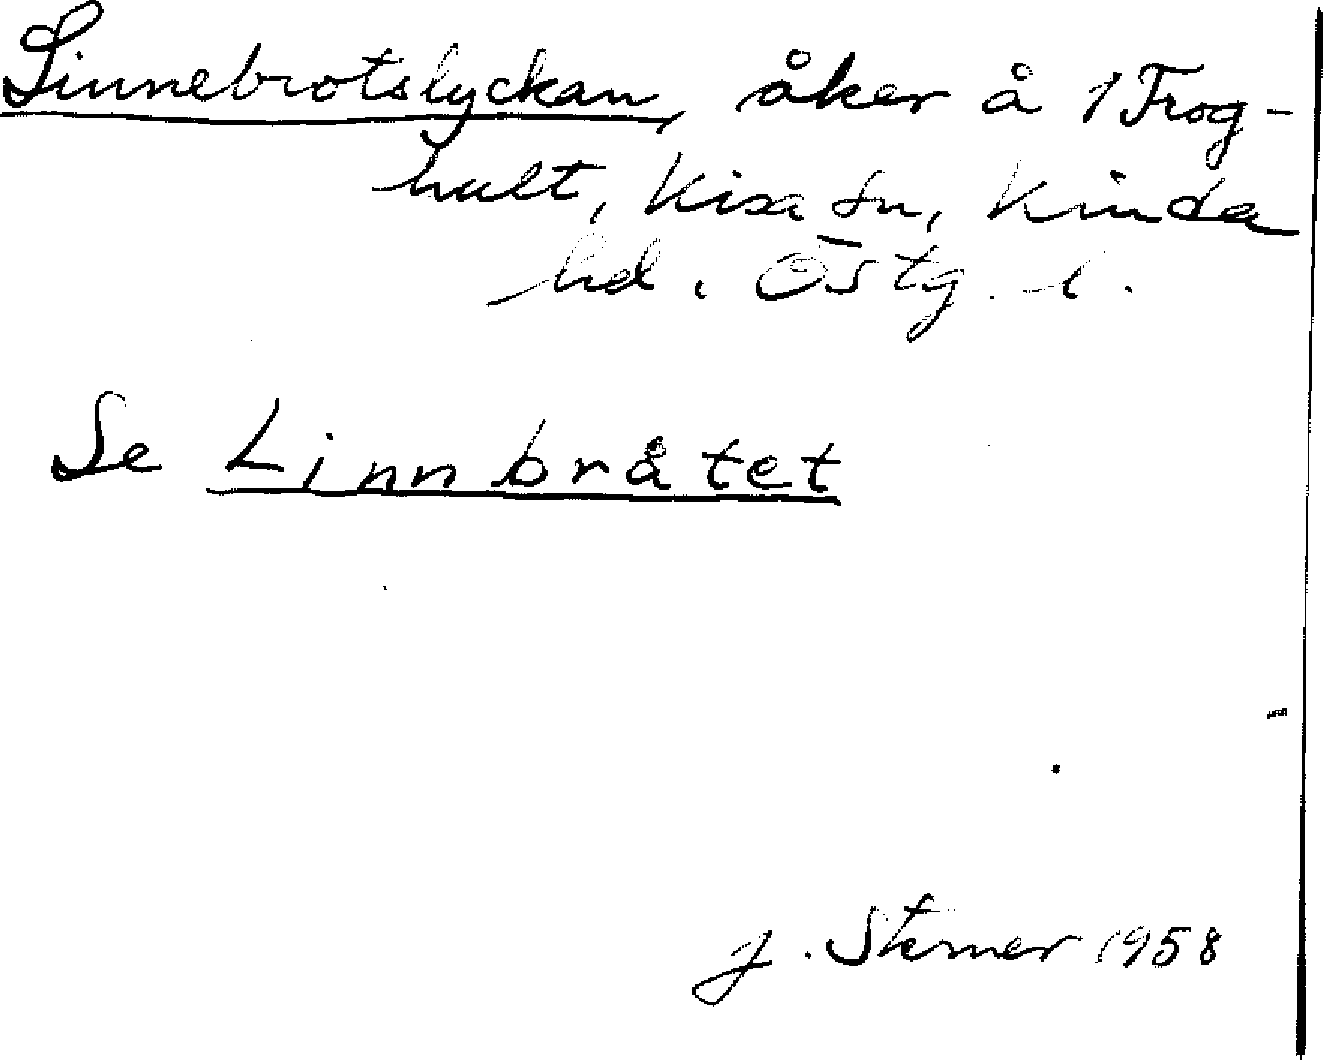 Linnebrotslyckan, åker å 1 Frog-
hult, Kisa sn, Kinda
hd. Östg. l.
Se Linnbråtet
J. Sterner 1958